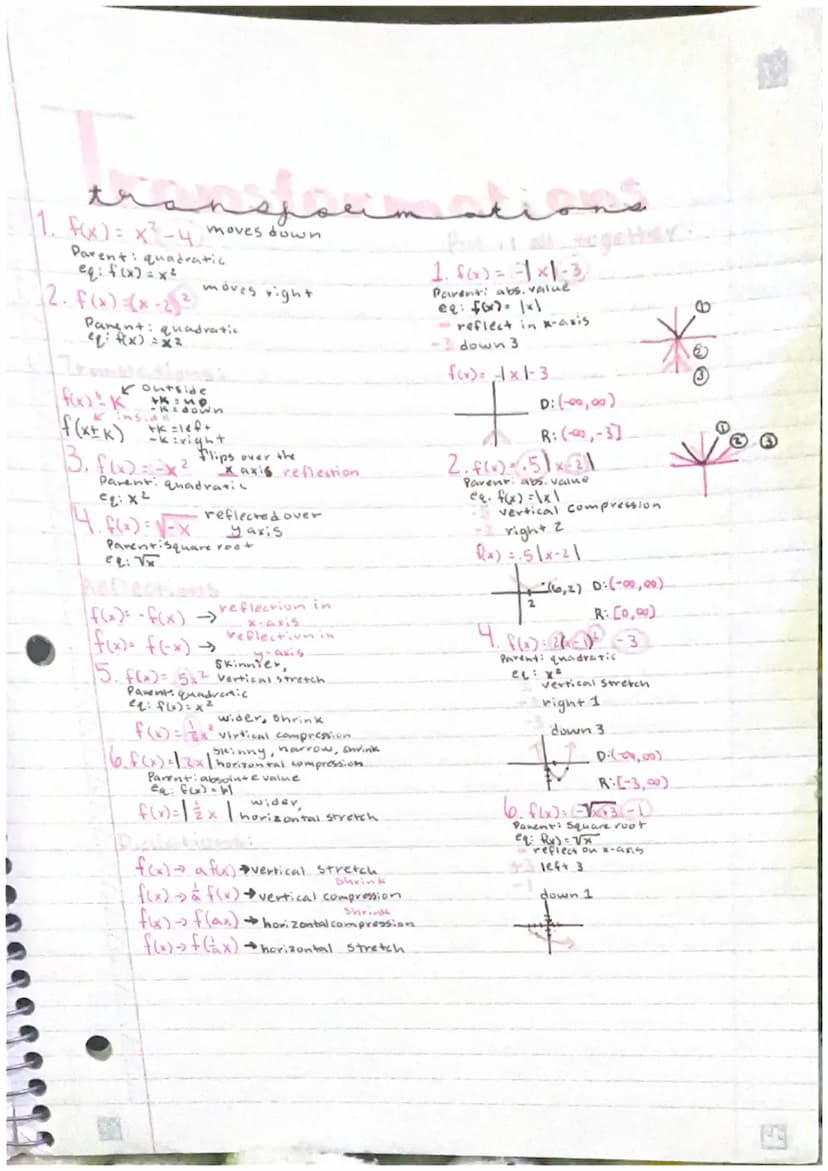 Transformations
transformations
1. f(x) = x² - 4 moves down
Parent: quadratic
eq: f(x) = x²
2. f(x) = (x - 2)² moves right
Parent: quadratic
eq: f(x) = x²
Translations:
f(x) ± K ↙ outside
+K = up
-K = down
f(x ± K) ↙ inside
+K = left
-K = right
3. f(x) = -x² flips over the
x axis reflection
Parent: quadratic
eq: x²
4. f(x) = √-x reflected over
y axis
Parent: Square root
eq: √x
Reflections
f(x) = -f(x) → reflection in
x-axis
f(x) = f(-x) → reflection in
y-axis
5. f(x) = 5x² Skinnier,
vertical stretch
Parent: quadratic
eq: f(x) = x²
f(x) = ½x² wider, shrink
virtical compression
6. f(x) = |2x| skinny, narrow, shrink
horizontal compression
Parent: absolute value
eq: f(x) = |x|
f(x) = |½x| wider,
horizontal stretch
Dialations:
f(x) → a f(x) → vertical stretch
f(x) → 1/a f(x) → vertical compression
shrink
f(x) → f(ax) → horizontal compression
shrink
f(x) → f(1/a x) → horizontal stretch
Put it all together:
1. f(x) = -|x| - 3
Parent: abs. value
eq: f(x) = |x|
- reflect in x-axis
-3 down 3
①
②
③
f(x) = -|x| - 3
D: (-∞, ∞)
R: (-∞, -3]
2. f(x) = .5|x - 2|
Parent: abs. value
eq. f(x) = |x|
.5 vertical compression
-2 right 2
① ② ③
f(x) = .5|x - 2|
(6,2) D: (-∞, ∞)
2
R: [0, ∞)
4. f(x) = 2(x - 1)² - 3
Parent: quadratic
eq: x²
vertical stretch
right 1
-3 down 3
D: (-∞, ∞)
R: [-3, ∞)
6. f(x) = -√x+3 - 1
Parent: Square root
eq: f(x) = √x
- reflect on x-axis
+3 left 3
-1
down 1